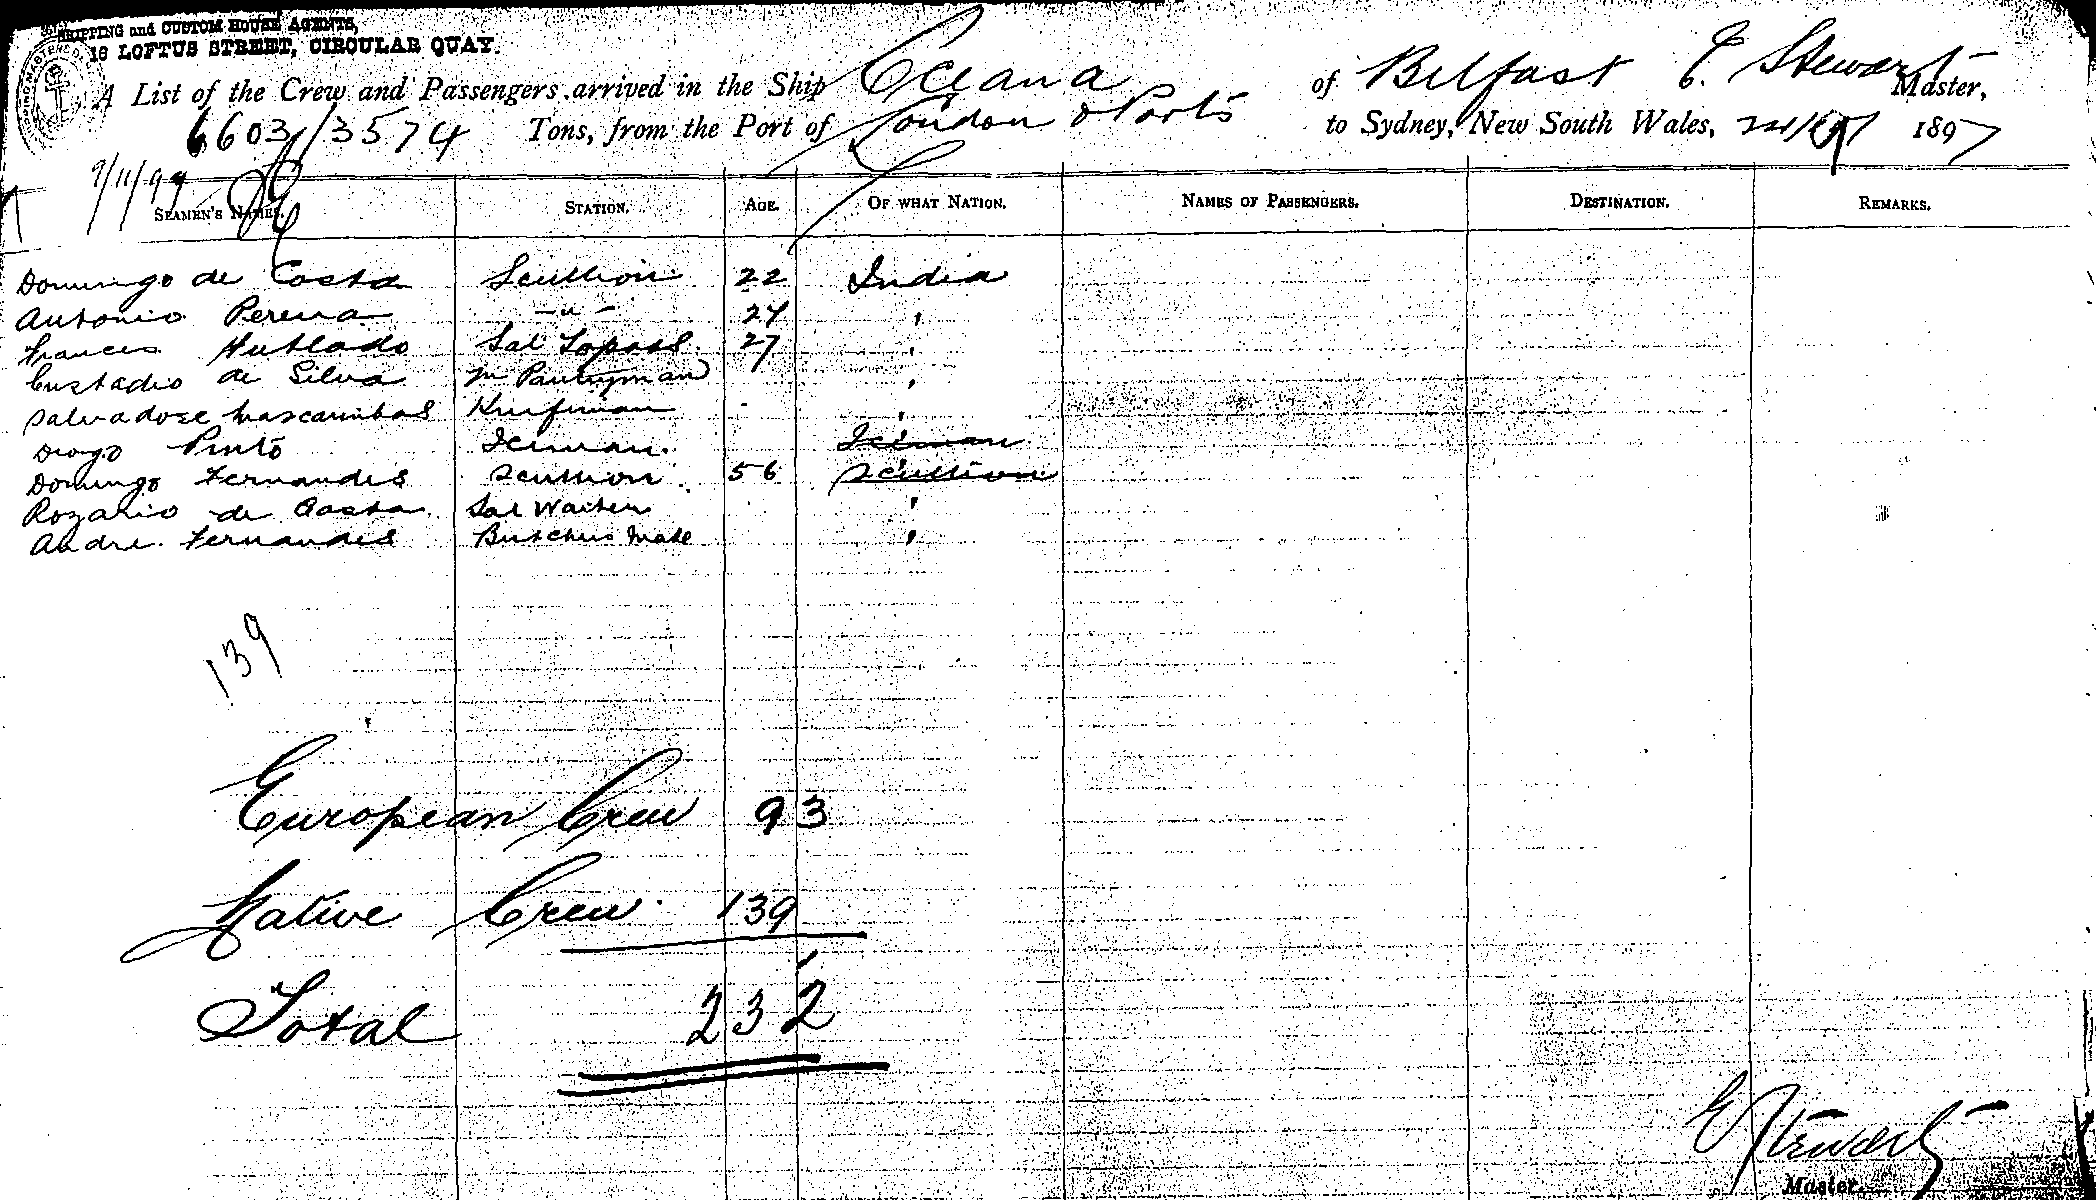 SHIPPING and CUSTOM HOUSE AGENTS,
18 LOFTUS STREET, CIRCULAR QUAY.
A List of the Crew and Passengers arrived in the Ship Oceana of Belfast E. Stewart Master,
6603/3574 Tons, from the Port of London & Ports to Sydney, New South Wales, 1897
9/11/97
SEAMEN'S NAMES. STATION. AGE. OF WHAT NATION. NAMES OF PASSENGERS. DESTINATION. REMARKS.
Domingo de Costa Scullion 22 India
Antonio Pereira — " — 24 '
Frances Hurtado Sal Topass 27 '
Custadio de Silva Pantryman '
Salvadose Mascarinhas Knifeman '
Diogo Pinto Iceman Iceman
Domingo Fernandes Scullion 56 Scullion
Rozario de Costa Sal Waiter '
Andre Fernandes Butchers Mate '
139
European Crew 93
Native Crew 139
Total 232
E Stewart
Master.